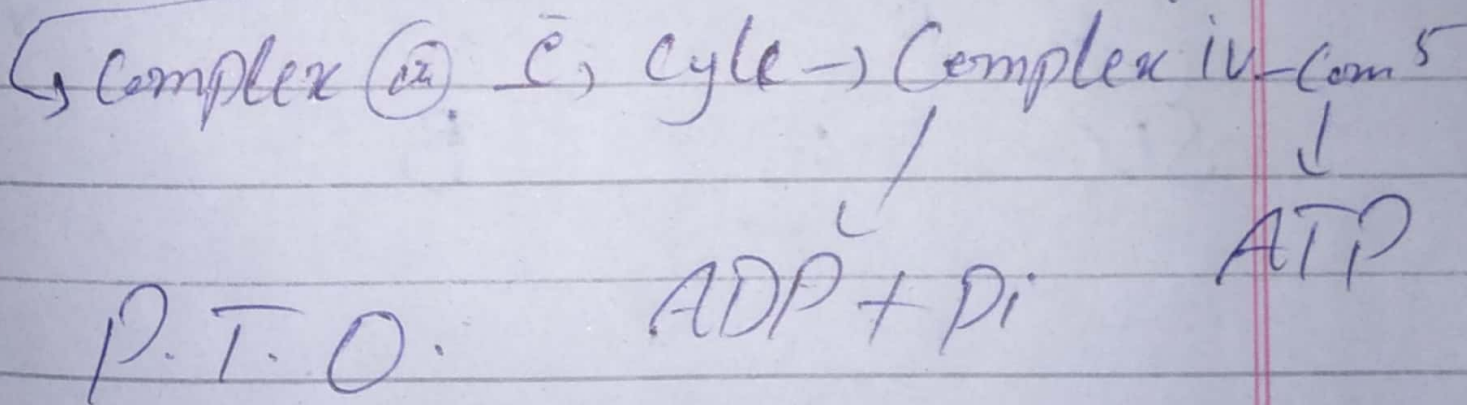 Complex iii. ē, Cyle → Complex iv - Com 5
ADP + Pi
ATP
P.T.O.